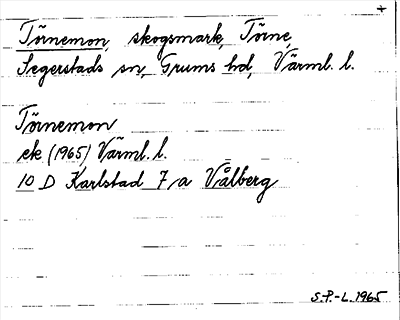 +
Törnemon, skogsmark, Törne,
Segerstads sn, Grums hd, Värml. l.
Törnemon
ek (1965) Värml. l.
10 D Karlstad 7 a Vålberg
S.P.-L. 1965